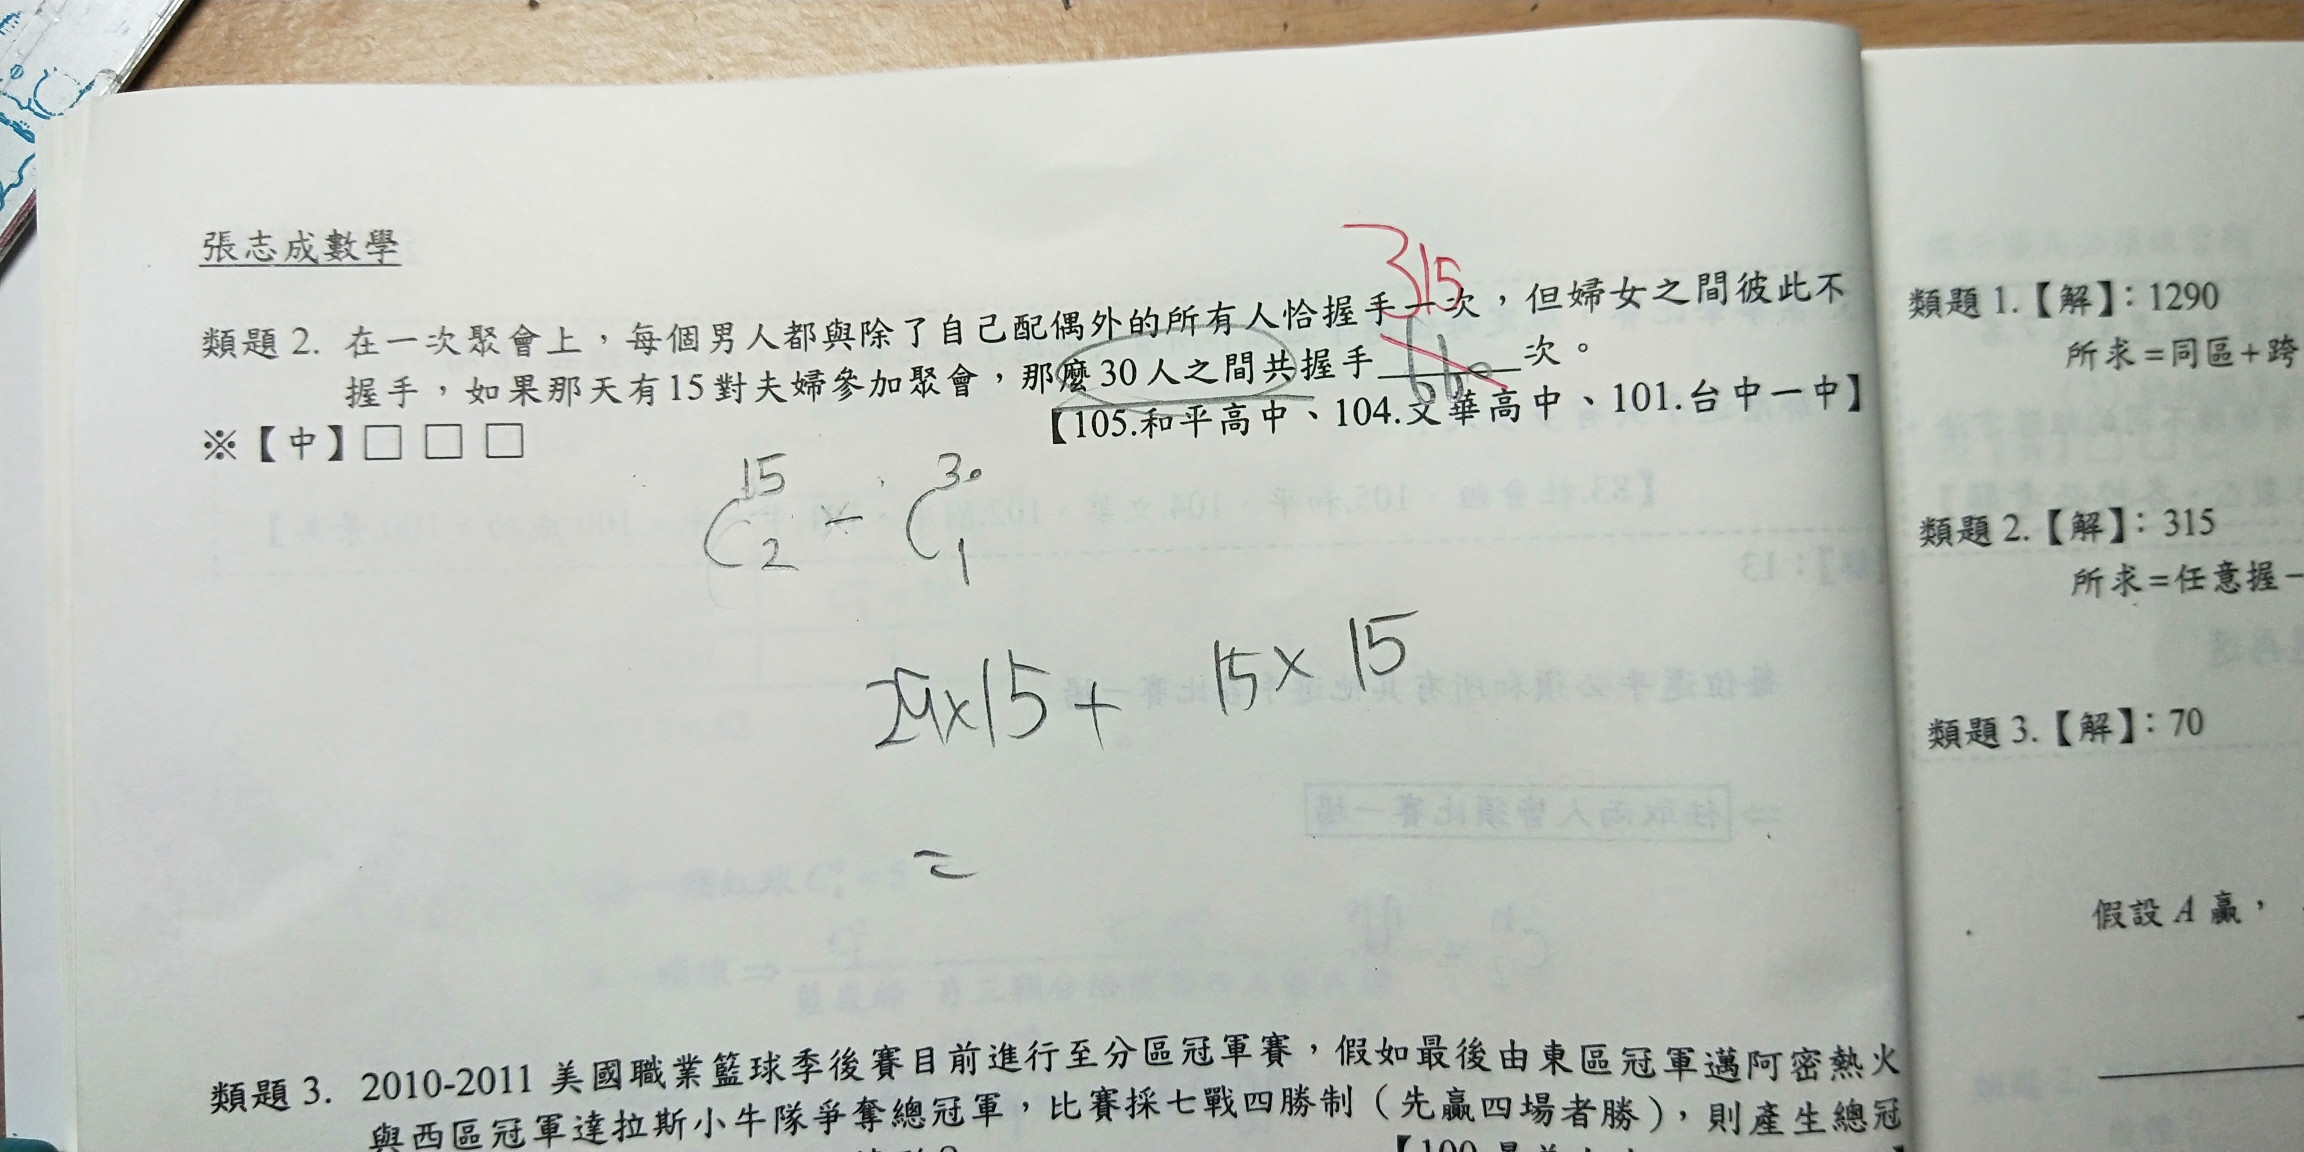 張志成數學
315
類題 2. 在一次聚會上，每個男人都與除了自己配偶外的所有人恰握手一次，但婦女之間彼此不
握手，如果那天有15對夫婦參加聚會，那麼30人之間共握手 660 次。
※【中】□ □ □
【105.和平高中、104.文華高中、101.台中一中】
C 15 2 - C 30 1
29×15+ 15×15
=
類題 3. 2010-2011 美國職業籃球季後賽目前進行至分區冠軍賽，假如最後由東區冠軍邁阿密熱火
與西區冠軍達拉斯小牛隊爭奪總冠軍，比賽採七戰四勝制（先贏四場者勝），則產生總冠
類題 1.【解】：1290
所求=同區+跨
類題 2.【解】：315
所求=任意握
類題 3.【解】：70
假設 A 贏，